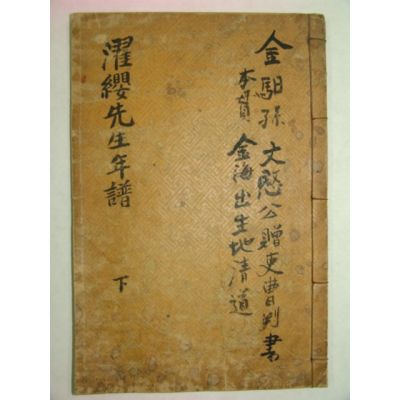 金馹孫 文愍公贈吏曹判書
本貫 金海 出生地清道
濯纓先生年譜
下